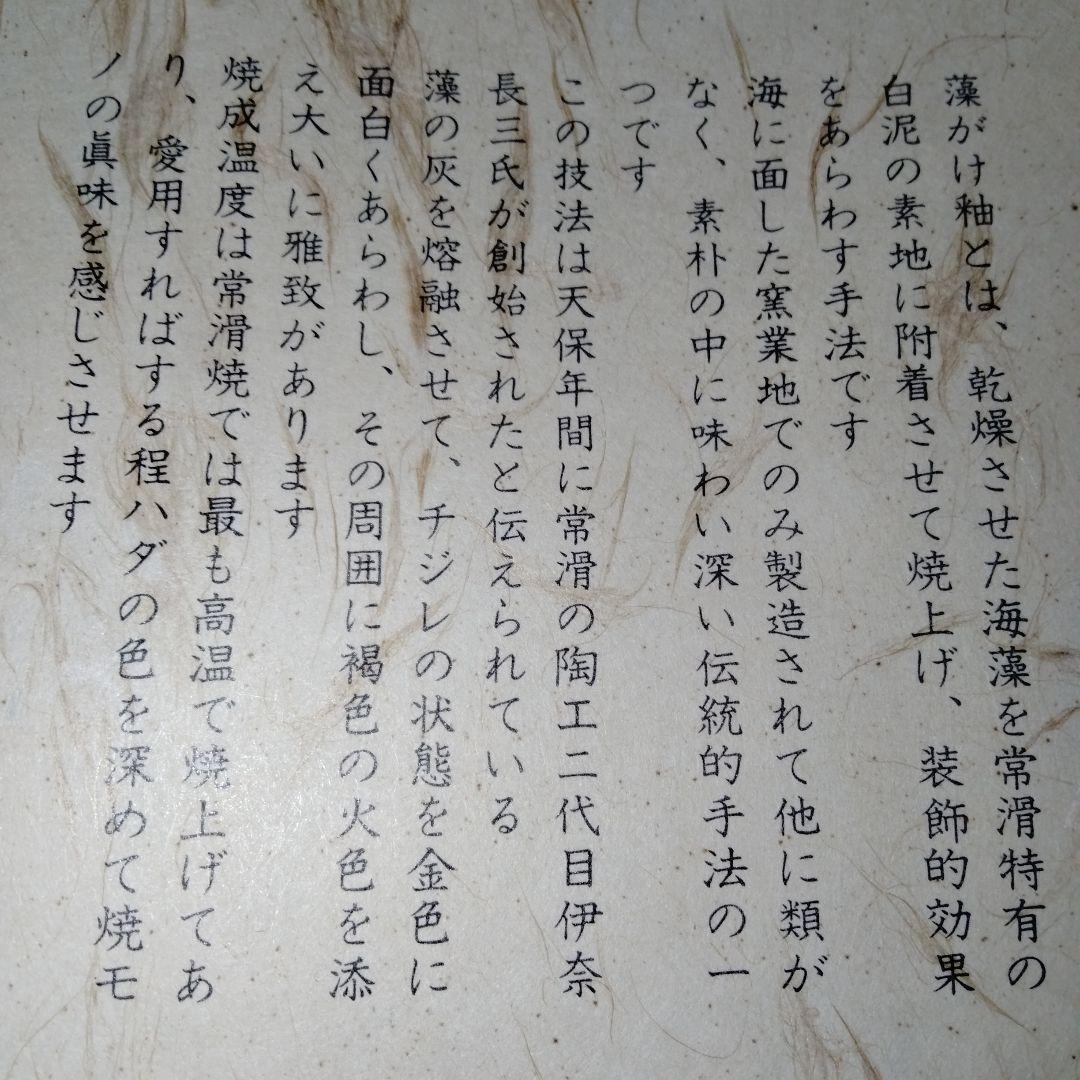 藻がけ釉とは、乾燥させた海藻を常滑特有の
白泥の素地に附着させて焼上げ、装飾的効果
をあらわす手法です
海に面した窯業地でのみ製造されて他に類が
なく、素朴の中に味わい深い伝統的手法の一
つです
この技法は天保年間に常滑の陶工二代目伊奈
長三氏が創始されたと伝えられている
藻の灰を熔融させて、チジレの状態を金色に
面白くあらわし、その周囲に褐色の火色を添
え大いに雅致があります
焼成温度は常滑焼では最も高温で焼上げてあ
り、愛用すればする程ハダの色を深めて焼モ
ノの眞味を感じさせます